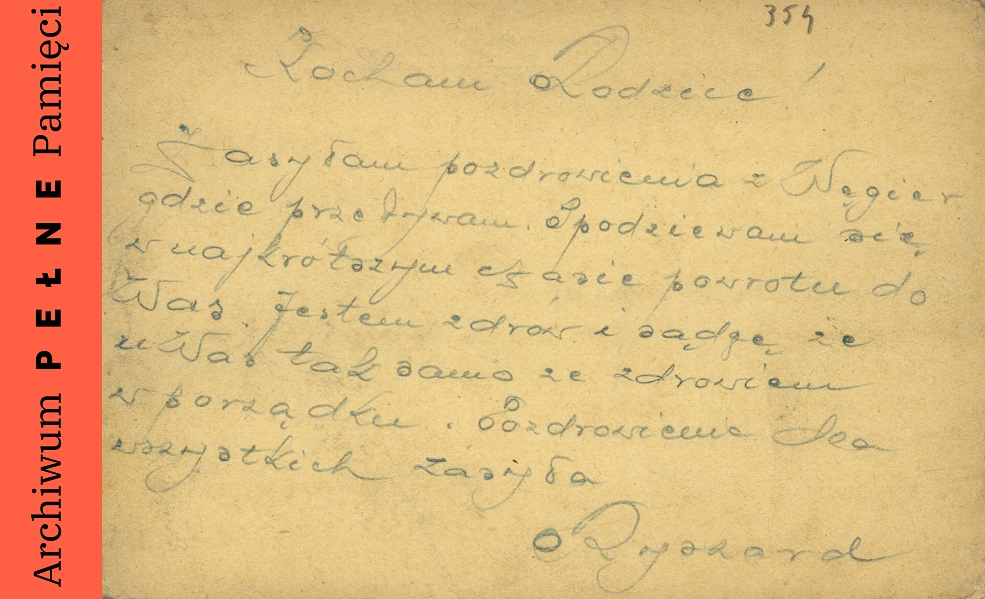 Archiwum PEŁNE Pamięci
354
Kocham Rodzice!
Zasyłam pozdrowienia z Węgier
gdzie przebywam. Spodziewam się
w najkrótszym czasie powrotu do
Was. Jestem zdrów i sądzę że
u Was tak samo ze zdrowiem
w porządku. Pozdrowienia dla
wszystkich zasyła
Ryszard